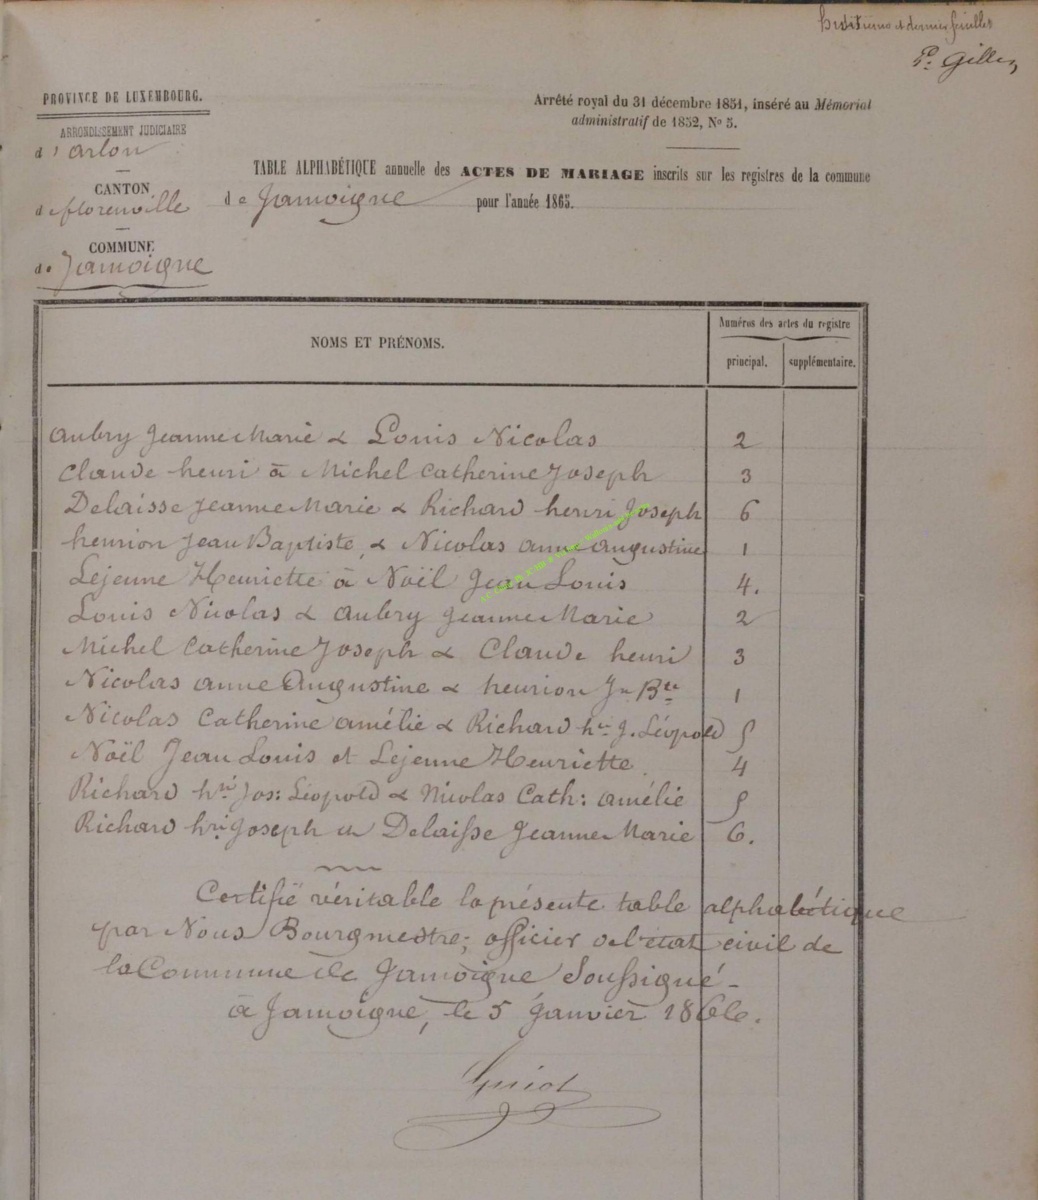 huitième et dernier feuillet
P. Gilles
PROVINCE DE LUXEMBOURG.
ARRONDISSEMENT JUDICIAIRE
d'Arlon
CANTON
de florenville
COMMUNE
de Jamoigne
Arrêté royal du 31 décembre 1851, inséré au Mémorial
administratif de 1852, No 5.
TABLE ALPHABÉTIQUE annuelle des ACTES DE MARIAGE inscrits sur les registres de la commune
de Jamoigne pour l'année 1865.
NOMS ET PRÉNOMS.
Numéros des actes du registre
principal. supplémentaire.
Aubry Jeanne Marie & Louis Nicolas 2
Claude henri à Michel Catherine Joseph 3
Delaisse Jeanne Marie & Richard henri Joseph 6
henrion Jean Baptiste & Nicolas anne augustine 1
Lejeune Henriette à Noël Jean Louis 4.
Louis Nicolas & Aubry Jeanne Marie 2
Michel Catherine Joseph & Claude henri 3
Nicolas anne Augustine & henrion Jn Bte 1
Nicolas Catherine amélie & Richard hri J. Léopold 5
Noël Jean Louis et Lejeune Henriette 4
Richard hri Jos: Léopold & Nicolas Cath: amélie 5
Richard hri Joseph & Delaisse Jeanne Marie 6.
Certifié véritable la présente table alphabétique
par Nous Bourgmestre, officier de l'état civil de
la Commune de Jamoigne Soussigné -
à Jamoigne, le 5 Janvier 1866.
Guiot